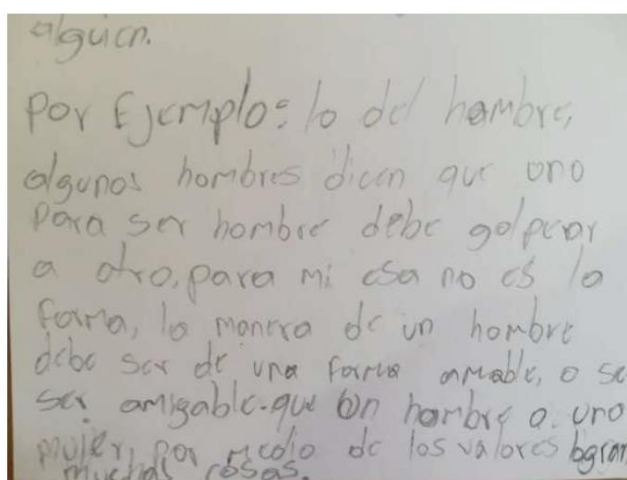 alguien.
Por Ejemplo: lo del hombre,
algunos hombres dicen que uno
para ser hombre debe golpear
a otro, para mi esa no es la
forma, la manera de un hombre
debe ser de una forma amable, o se
ser amigable. que un hombre o uno
mujer, por medio de los valores logran
muchas cosas.